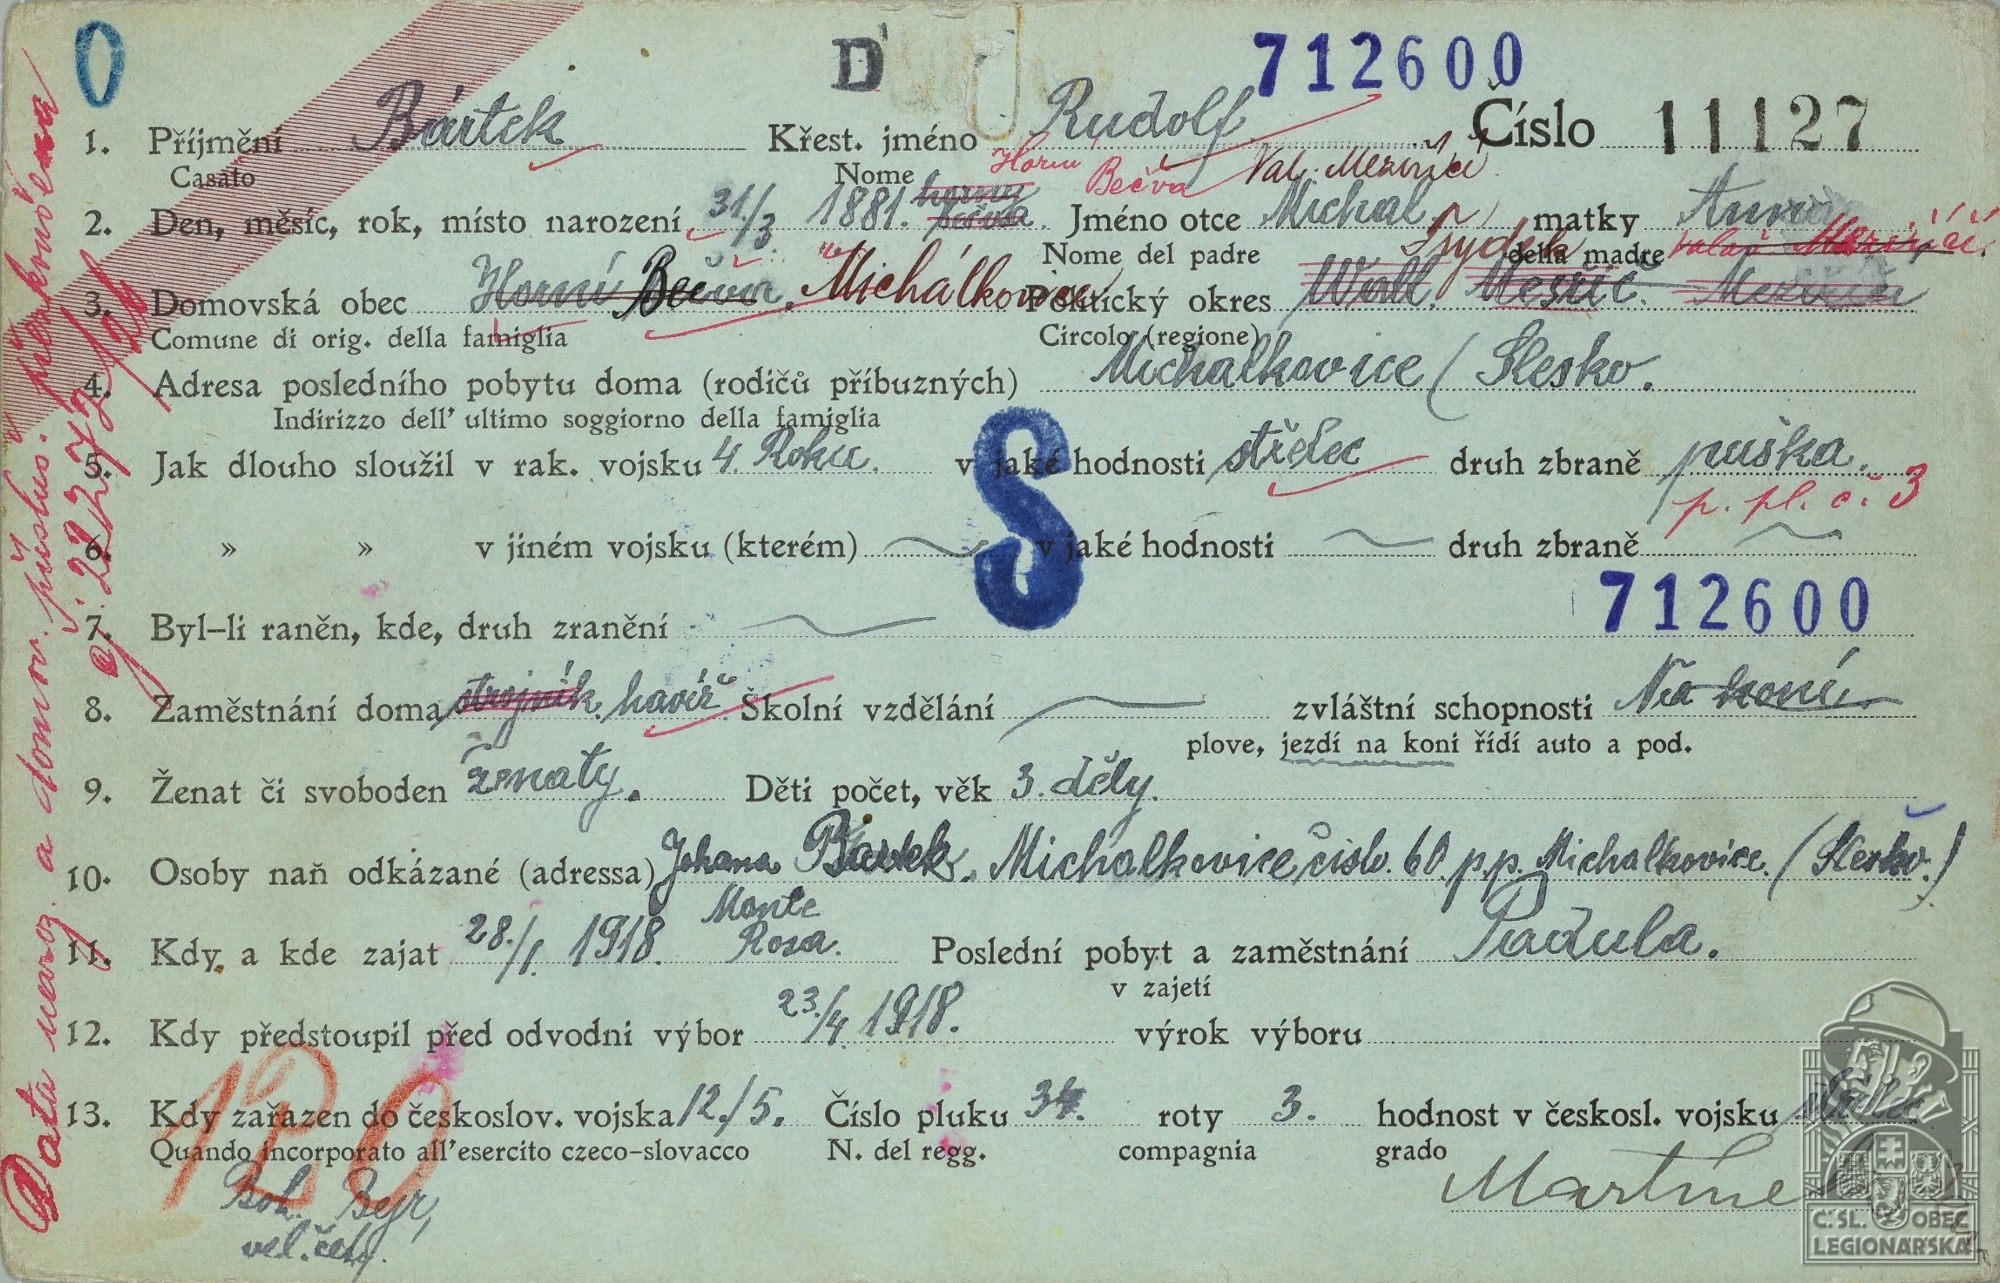 0 D 712600
1. Příjmení Bártek Křest. jméno Rudolf Číslo 11127
Casato Nome Horní Bečva Val. Meziříčí
2. Den, měsíc, rok, místo narození 31./3. 1881. horny bečva Jméno otce Michal matky Anna
Nome del padre della madre Frýdek Valaš Meziříčí
3. Domovská obec Horní Bečva, Michálkovice Politický okres Wall. Mesřič.
Comune di orig. della famiglia Circolo (regione)
4. Adresa posledního pobytu doma (rodičů příbuzných) Michalkovice (Slesko.
Indirizzo dell' ultimo soggiorno della famiglia
5. Jak dlouho sloužil v rak. vojsku 4. Roku. v jaké hodnosti střelec druh zbraně puška.
p. pl. č. 3
S
6. » » v jiném vojsku (kterém) v jaké hodnosti druh zbraně
712600
7. Byl-li raněn, kde, druh zranění
8. Zaměstnání doma strojník. havíř Školní vzdělání zvláštní schopnosti Na koni.
plove, jezdí na koni řídí auto a pod.
9. Ženat či svoboden ženatý. Děti počet, věk 3. děly.
10. Osoby naň odkázané (adressa) Johana Bartek, Michalkovice čislo. 60 p.p. Michalkovice. (Slesko.)
11. Kdy a kde zajat 28./1. 1918. Monte Rosa. Poslední pobyt a zaměstnání Padula.
v zajetí
12. Kdy předstoupil před odvodní výbor 23./4. 1918. výrok výboru
13. Kdy zařazen do českoslov. vojska 12./5. Číslo pluku 34. roty 3. hodnost v českosl. vojsku střelec
Quando incorporato all'esercito czeco-slovacco N. del regg. compagnia grado
120
Boh. Bejr,
vel. čety.
Data naroz. a domov. příslus. překontrolována
Č.SL. OBEC
LEGIONÁŘSKÁ